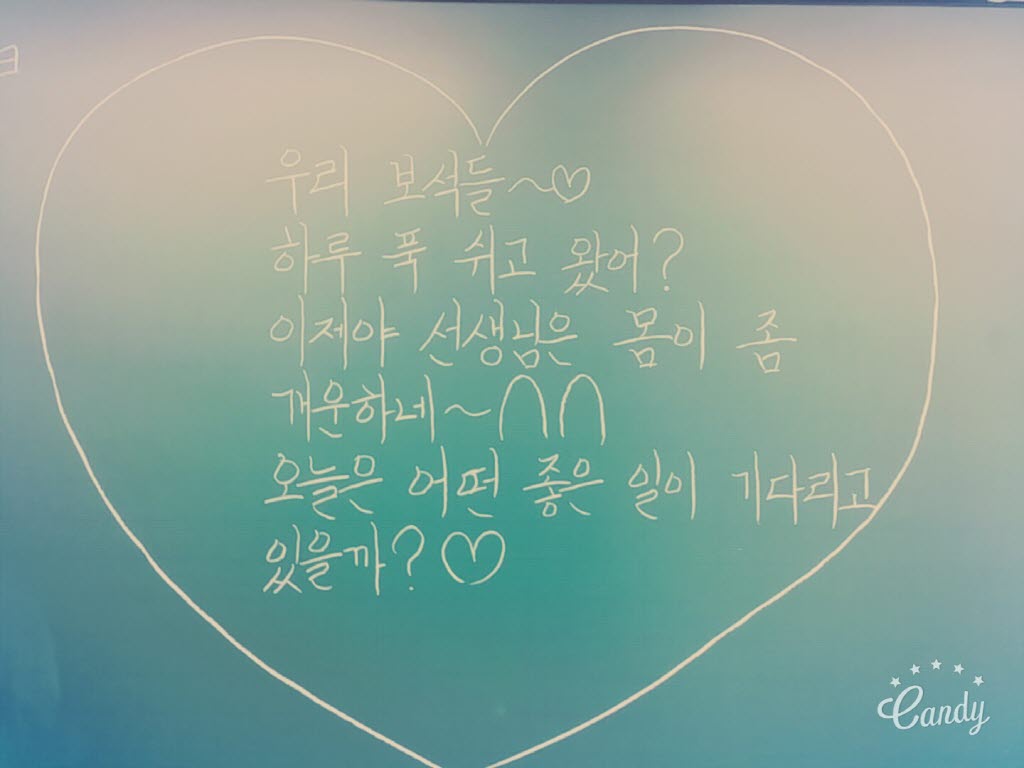 우리 보석들~♡
하루 푹 쉬고 왔어?
이제야 선생님은 몸이 좀
개운하네~∩∩
오늘은 어떤 좋은 일이 기다리고
있을까?♡
Candy